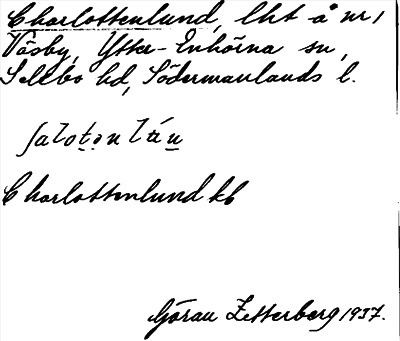 Charlottenlund, lht å nr 1
Väsby, Ytter-Enhörna sn,
Selebo hd, Södermanlands l.
ʃalotǝ̣n lún
Charlottenlund kb
Göran Zetterberg 1937.